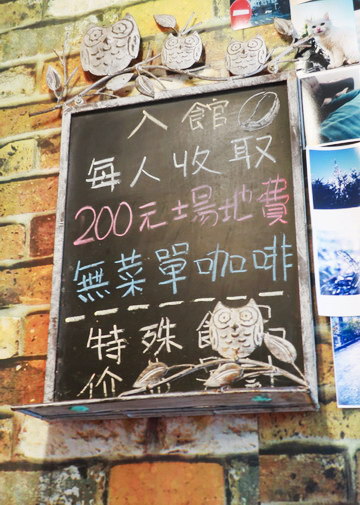 入館
每人收取
200元場地費
無菜單咖啡
特殊
價